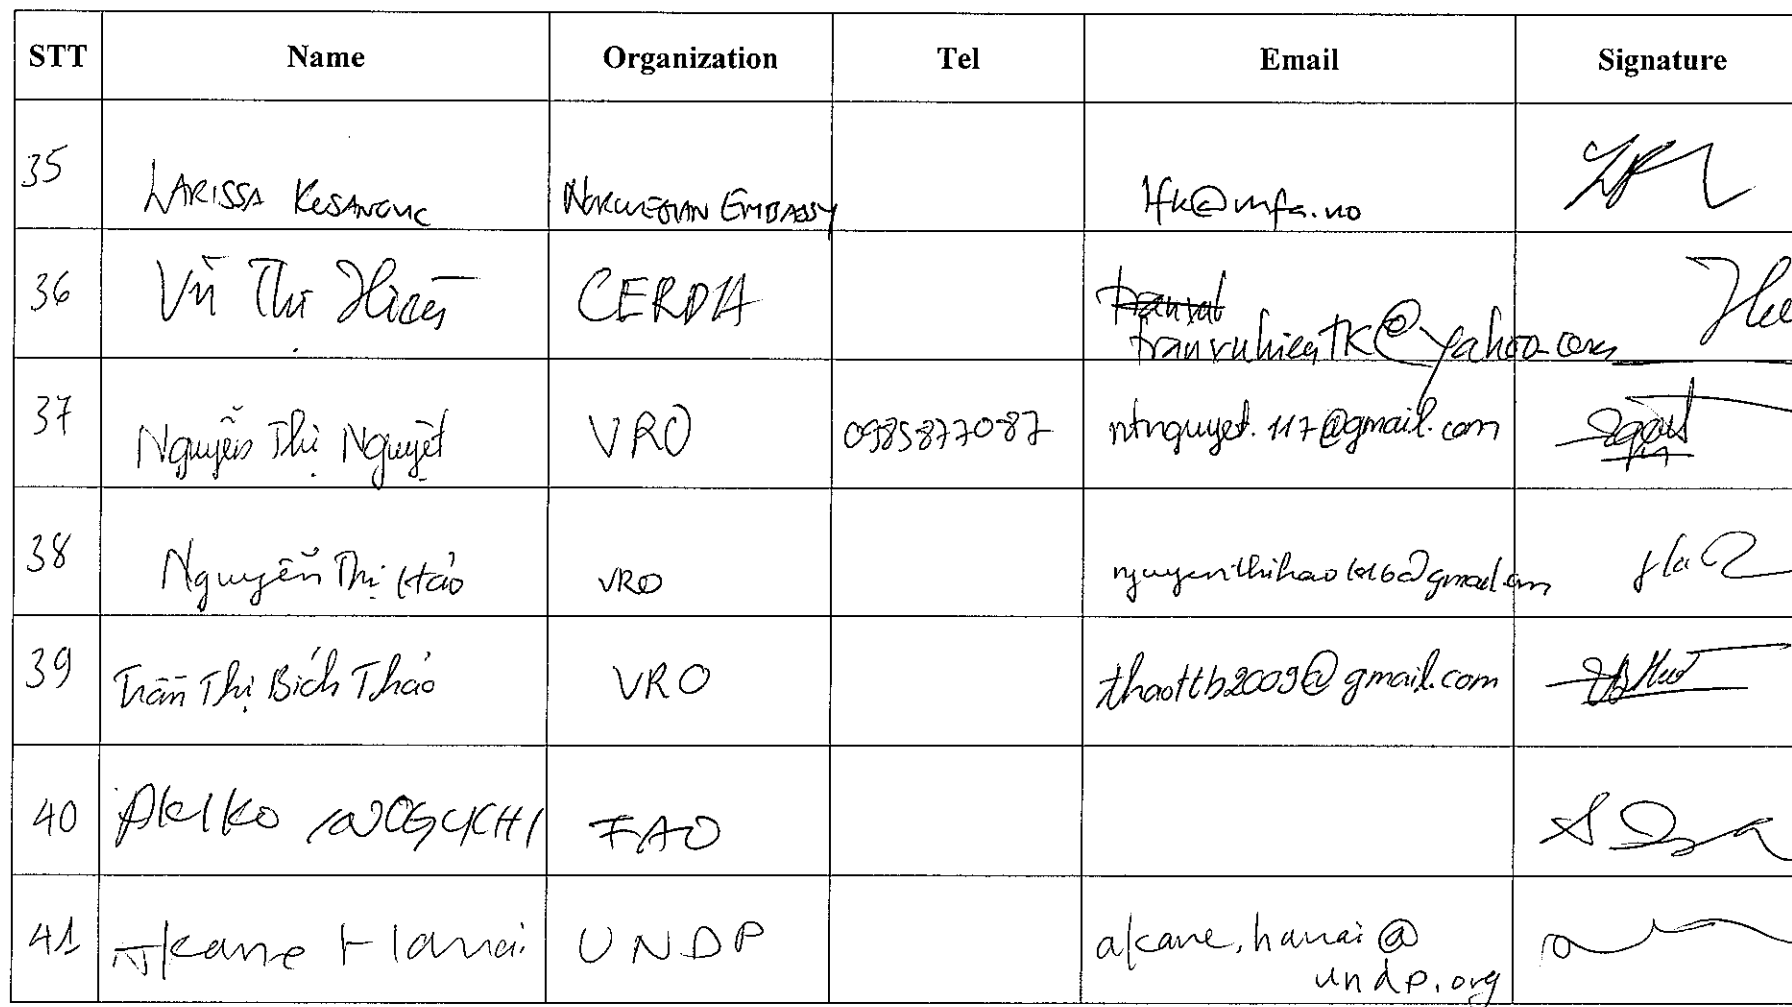 STT Name Organization Tel Email Signature
35 LARISSA NORWEGIAN EMBASSY lfk@mfa.no
36 Vũ Thị Hiền CERDA
tranvuhienTK@yahoo.com
37 Nguyễn Thị Nguyệt VRO 0985877087 ntnguyet.117@gmail.com
38 Nguyễn Thị Hảo VRO
39 Trần Thị Bích Thảo VRO thaottb2009@gmail.com
40 AKIKO INOGUCHI FAO
41 Akane Hanai UNDP akane.hanai@
undp.org